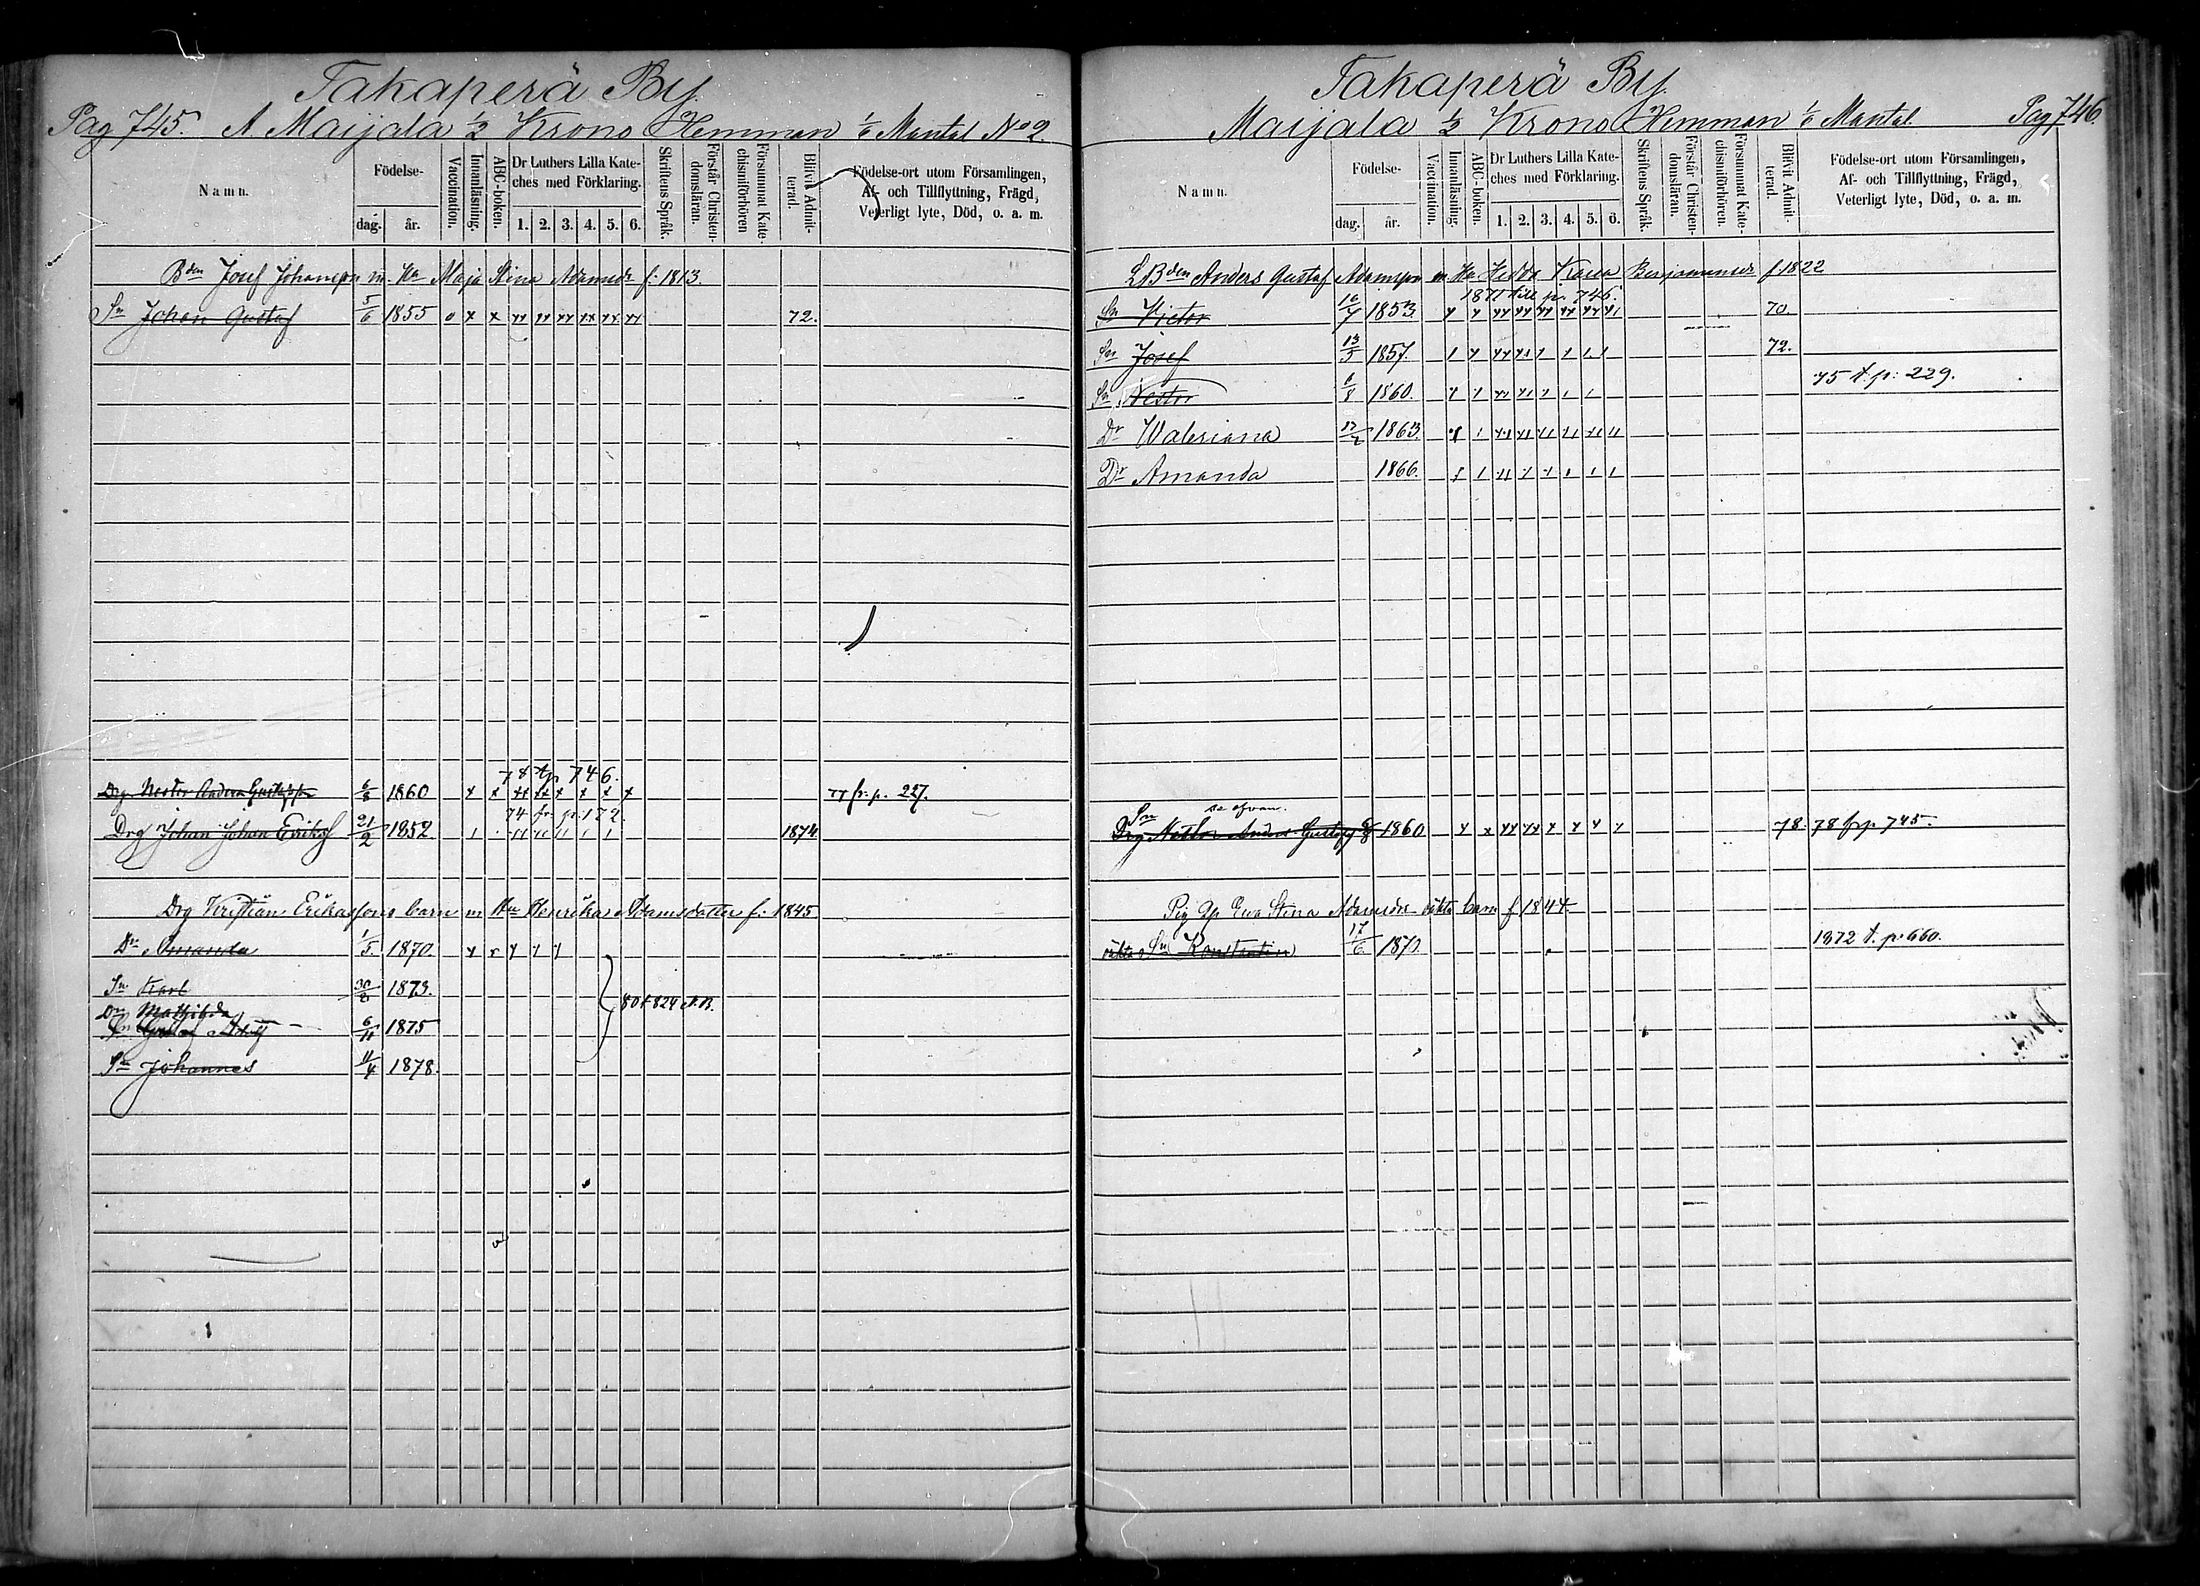 Takaperä By.
Pag 745. A Maijala 1/2 Krono Hemman 1/6 Mantal No 2.
Namn.
Födelse-
dag.
år.
Vaccination.
Innanläsning.
ABC-boken.
Dr Luthers Lilla Kate-
ches med Förklaring.
1. 2. 3. 4. 5. 6.
Skriftens Språk.
Förstår Christen-
domsläran.
Försummat Kate-
chismiförhören
Blifvit Admit-
terad.
Födelse-ort utom Församlingen,
Af- och Tillflyttning, Frägd,
Veterligt lyte, Död, o. a. m.
Bden Josef Johansson m. Hu Maja Stina Adamsdr f: 1813.
Sn Johan Gustaf 5/6 1855 o x x xx xx xx xx xx xx 72.
78 tp 746.
Drg Nestor Anders Gustafss 6/8 1860 x x xx xx x x x x 77 fr. p. 227.
74 fr. p: 172.
Drg Johan Johan Eriksf 21/2 1852 1874
Drg Kristian Erikssons barn m Hu Henrika Adamsdotter f: 1845
Dr Amanda 1/5 1870.
Sn Karl 30/8 1873.
80 t 824 N.B.
Dr Mathilda
Sn Gustaf Adolf 6/11 1875
Sn Johannes 11/4 1878.
Takaperä By.
Maijala 1/2 Krono Hemman 1/6 Mantal. Pag 746.
Namn.
Födelse-
dag.
år.
Vaccination.
Innanläsning.
ABC-boken.
Dr Luthers Lilla Kate-
ches med Förklaring.
1. 2. 3. 4. 5. 6.
Skriftens Språk.
Förstår Christen-
domsläran.
Försummat Kate-
chismiförhören.
Blifvit Admit-
terad.
Födelse-ort utom Församlingen,
Af- och Tillflyttning, Frägd,
Veterligt lyte, Död, o. a. m.
LBden Anders Gustaf Adamsson m Hu Hedda Kaisa Benjaminsdr f 1822
1871 till p. 746.
Sn Victor 10/7 1853. 70.
Sn Josef 13/5 1857. 72.
Sn Nestor 6/8 1860. 75 t. p: 229.
Dr Waleriana 12/2 1863
Dr Amanda 1866.
se ofvan.
Sn
Drg Nestor Anders Gustafss 6/8 1860 78. 78 frp 745.
Pig Eva Stina Adamsdrs oäkta barn f 1844
oäkta Sn Konstantin 17/6 1870. 1872 t. p: 660.